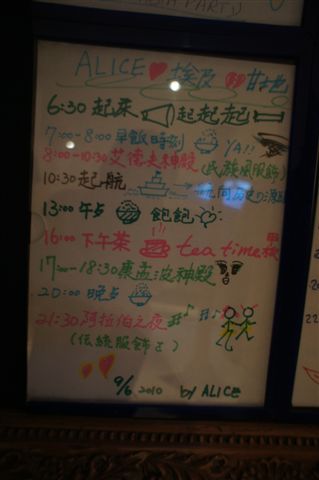 PARTY
ALICE 埃及 甘地
6:30 起床 起起起
7:00-8:00 早飯時刻 YA!!
8:00-10:30 艾德夫神殿 (民族風服飾)
10:30 起航
13:00 午点 飽飽
16:00 下午茶 tea time
17:00-18:30 康孟波神殿
20:00 晚点
21:30 阿拉伯之夜
(伝統服飾さ)
9/6 2010 by ALICE